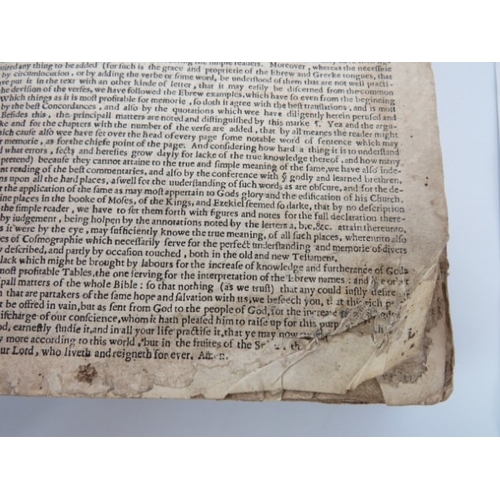 uized any thing to be added (for such is the grace and proprietie of the Ebrew and Greeke tongues, that
by circumlocution, or by adding the verbe or some word, be understood of them that are not well practi-
ave put it in the text with an other kinde of letter, that it may easily be discerned from the common
the devision of the verses, we have followed the Ebrew examples, which have so even from the beginning
Which things as it is most profitable for memorie, so doth it agree with the best translations, and is most
by the best Concordances, and also by the quotations which wee have diligently herein perused and
Besides this, the principall matters are noted and distinguished by this marke ¶. Yea and the argu-
ke and for the chapters with the number of the verse are added, that by all meanes the reader might
which cause also wee have set over the head of every page some notable word of sentence which may
r memorie, as for the chiefe point of the page. And considering how hard a thing it is to understand
d what errors, sects and heresies grow dayly for lacke of the true knowledge thereof, and how many
pretend) because they cannot attaine to the true and simple meaning of the same, we have also inde-
nt reading of the best commentaries, and also by the conference with ẙ godly and learned brethren,
ns upon all the hard places, aswell for the understanding of such words as are obscure, and for the de-
r the application of the same as may most appertain to Gods glory and the edification of his Church.
ine places in the booke of Moses, of the Kings, and Ezekiel seemed so darke, that by no description
the simple reader, we have to set them forth with figures and notes for the full declaration there-
by judgement, being holpen by the annotations noted by the letters a, b, c, &c. attain thereunto,
s it were by the eye, may sufficiently knowe the true meaning, of all such places, whereunto also
es of Cosmographie which necessarily serve for the perfect understanding and memorie of divers
y described, and partly by occasion touched, both in the old and new Testument,
lack which might be brought by labours for the increase of knowledge and furtherance of Gods
most profitable Tables, the one serving for the interpretation of the Ebrew names: and
ipall matters of the whole Bible: so that nothing (as we trust) that any could justly desire
t that are partakers of the same hope and salvation with us, we beseech you,
t be offred in vain, but as sent from God to the people of God, for the increase
ischarge of our conscience, whom it hath pleased him to raise up for this purpose
od, earnestly studie it, and in all your life practise it, that ye may now
y more according to this world, but in the fruites of the
ur Lord, who liveth and reigneth for ever. Amen.